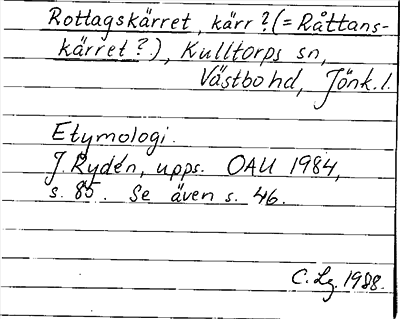 Rotlagskärret, kärr? (= Råttans-
kärret?), Kulltorps sn,
Västbo hd, Jönk. l.
Etymologi.
J. Rydén, upps. OAU 1984,
s. 85. Se även s. 46.
C. Lg. 1988.